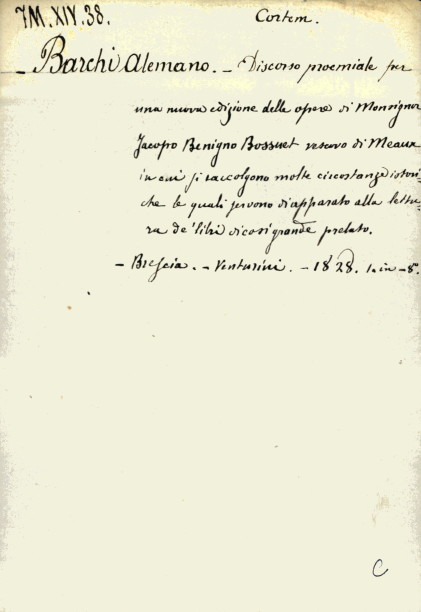 7M.XIV.38.
Cortem.
- Barchi Alemano. - Discorso proemiale per
una nuova edizione delle opere di Monsignor
Jacopo Benigno Bossuet vescovo di Meaux
in cui si raccolgono molte circostanze istori-
che le quali servono di apparato alla lettu-
ra de' libri di così grande prelato.
- Brescia. - Venturini. - 1828. in-8°.
C